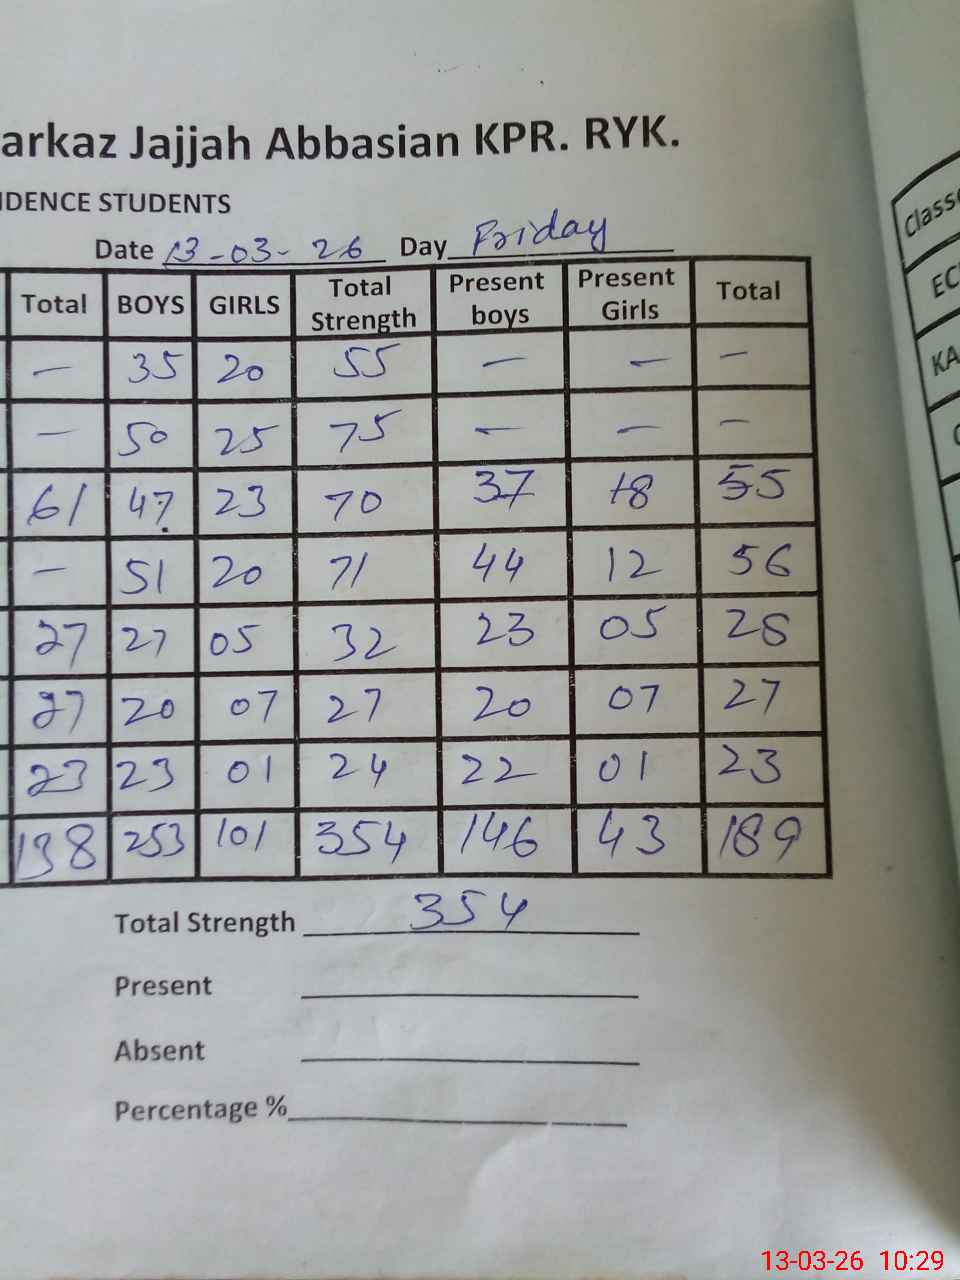 arkaz Jajjah Abbasian KPR. RYK.
IDENCE STUDENTS
Date 13-03-26 Day Friday
Total BOYS GIRLS Total Strength Present boys Present Girls Total
— 35 20 55 — — —
— 50 25 75 — — —
61 47 23 70 37 18 55
— 51 20 71 44 12 56
27 27 05 32 23 05 28
27 20 07 27 20 07 27
23 23 01 24 22 01 23
138 253 101 354 146 43 189
Total Strength 354
Present
Absent
Percentage %
Classe
EC
KA
13-03-26 10:29